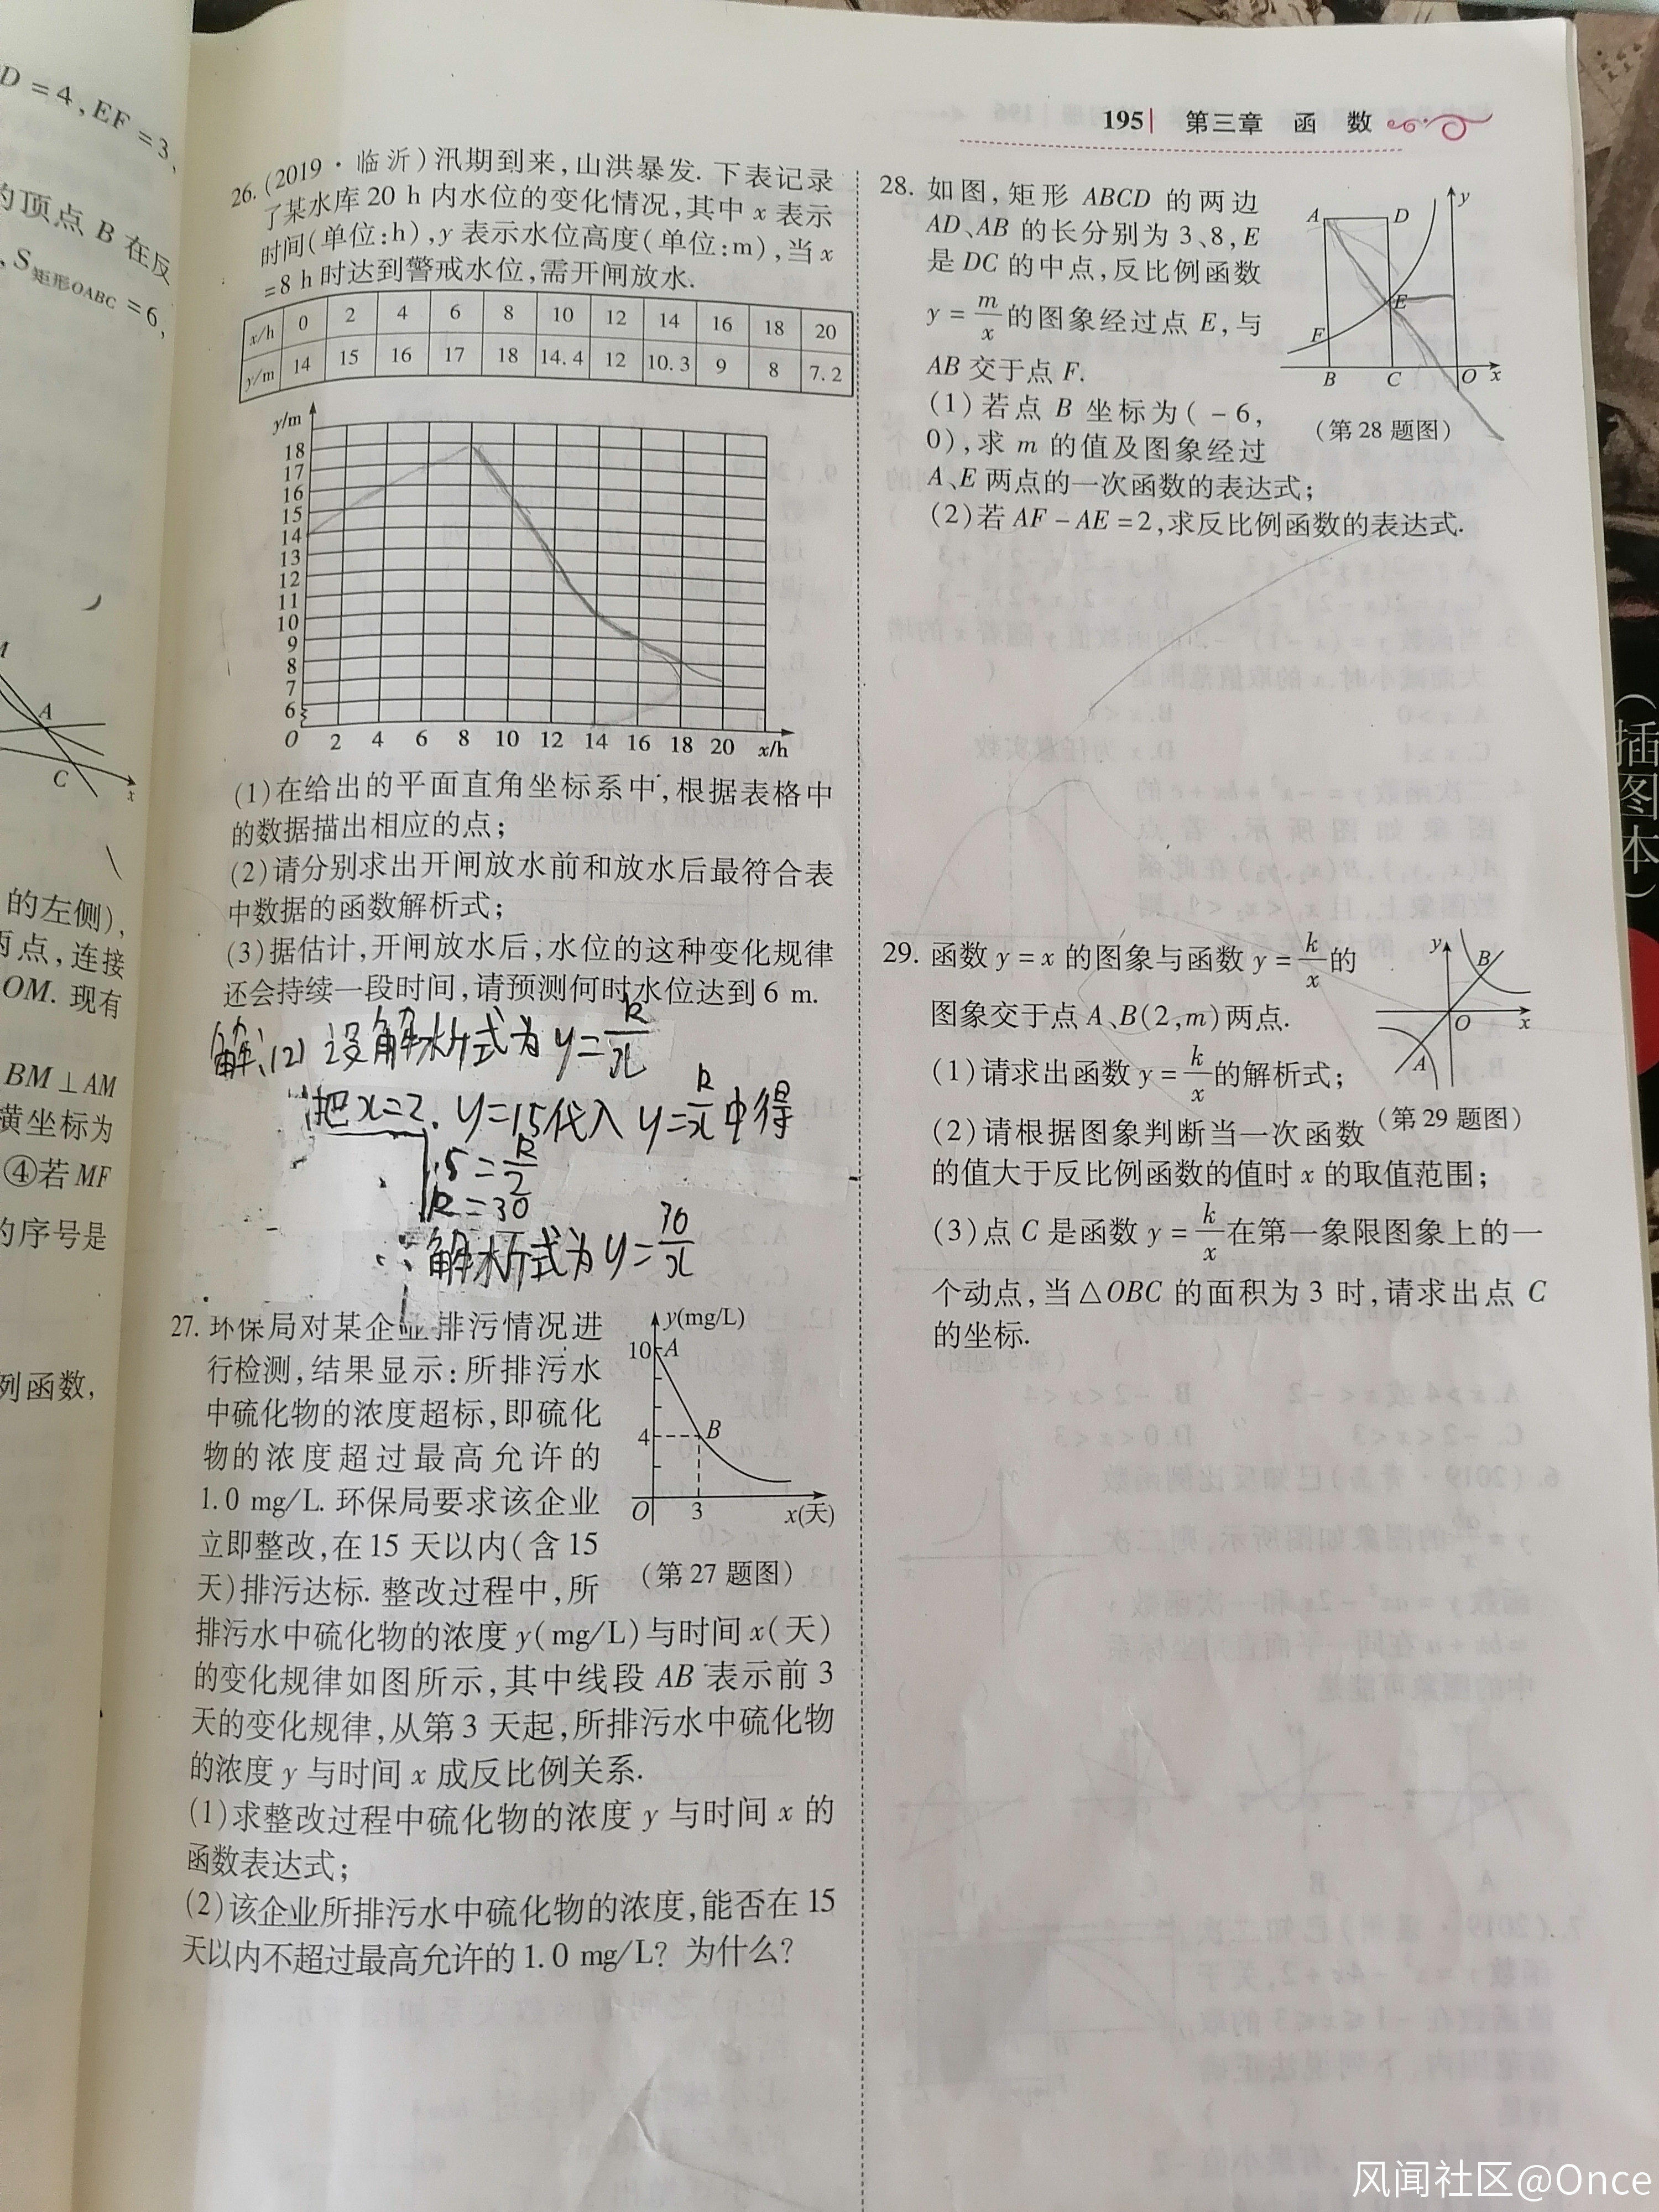 D＝4，EF＝3，
的顶点 B 在反
，S矩形OABC＝6，
A
C
x
的左侧），
两点，连接
OM. 现有
BM⊥AM
横坐标为
④若 MF
的序号是
列函数，
195| 第三章 函 数
26.（2019·临沂）汛期到来，山洪暴发. 下表记录
了某水库 20 h 内水位的变化情况，其中 x 表示
时间(单位:h)，y 表示水位高度(单位:m)，当 x
＝8 h 时达到警戒水位，需开闸放水.
x/h 0 2 4 6 8 10 12 14 16 18 20
y/m 14 15 16 17 18 14.4 12 10.3 9 8 7.2
y/m
18
17
16
15
14
13
12
11
10
9
8
7
6
O 2 4 6 8 10 12 14 16 18 20 x/h
(1)在给出的平面直角坐标系中，根据表格中
的数据描出相应的点；
(2)请分别求出开闸放水前和放水后最符合表
中数据的函数解析式；
(3)据估计，开闸放水后，水位的这种变化规律
还会持续一段时间，请预测何时水位达到 6 m.
解：(2) 设解析式为 y=k/x
把x=2. y=15代入 y=k/x中得
15=k/2
k=30
∴解析式为y=30/x
27. 环保局对某企业排污情况进
行检测，结果显示：所排污水
中硫化物的浓度超标，即硫化
物的浓度超过最高允许的
1.0 mg/L. 环保局要求该企业
立即整改，在 15 天以内(含 15
天)排污达标. 整改过程中，所
排污水中硫化物的浓度 y(mg/L)与时间 x(天)
的变化规律如图所示，其中线段 AB 表示前 3
天的变化规律，从第 3 天起，所排污水中硫化物
的浓度 y 与时间 x 成反比例关系.
(1)求整改过程中硫化物的浓度 y 与时间 x 的
函数表达式；
(2)该企业所排污水中硫化物的浓度，能否在 15
天以内不超过最高允许的 1.0 mg/L？为什么？
y(mg/L)
10 A
4 B
O 3 x(天)
(第 27 题图)
28. 如图，矩形 ABCD 的两边
AD、AB 的长分别为 3、8，E
是 DC 的中点，反比例函数
y＝m/x的图象经过点 E，与
AB 交于点 F.
(1)若点 B 坐标为(－6，
0)，求 m 的值及图象经过
A、E 两点的一次函数的表达式；
(2)若 AF－AE＝2，求反比例函数的表达式.
y
A D
E
F
B C O x
(第 28 题图)
29. 函数 y＝x 的图象与函数 y＝k/x的
图象交于点 A、B(2,m)两点.
(1)请求出函数 y＝k/x的解析式；
(2)请根据图象判断当一次函数
的值大于反比例函数的值时 x 的取值范围；
(3)点 C 是函数 y＝k/x在第一象限图象上的一
个动点，当△OBC 的面积为 3 时，请求出点 C
的坐标.
y
B
O x
A
(第 29 题图)
（插图本）
风闻社区@Once